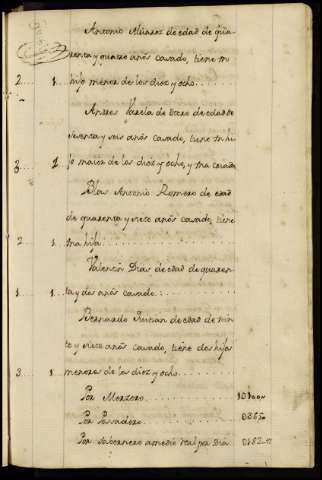 Antonio Alvarez de edad de qua
renta y quatro años casado, tiene un
2 1 hijo menor de los diez y ocho
Andres Varela de Otero de edad de
sesenta y seis años casado, tiene un hi
3 1 jo maior de los diez y ocho, y una criada
Blas Antonio Romero de edad
de quarenta y siete años casado, tiene
2 1 una hija
Valentin Dias de edad de quaren
1 1 ta y dos años casado
Bernardo de edad de vein
te y siete años casado, tiene dos hijos
3 1 menores de los diez y ocho
Por Mesonero
Por Panadero
Por tabernero a medio real por dia